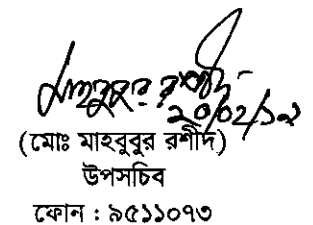 মাহবুবুর রশীদ
২০/০২/১২
(মোঃ মাহবুবুর রশীদ)
উপসচিব
ফোন : ৯৫১১০৭৩